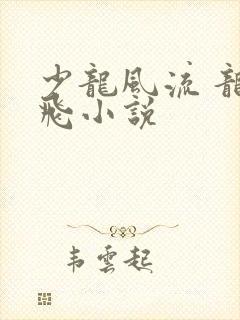 少龍風流 龍
飛小說
韋雲起